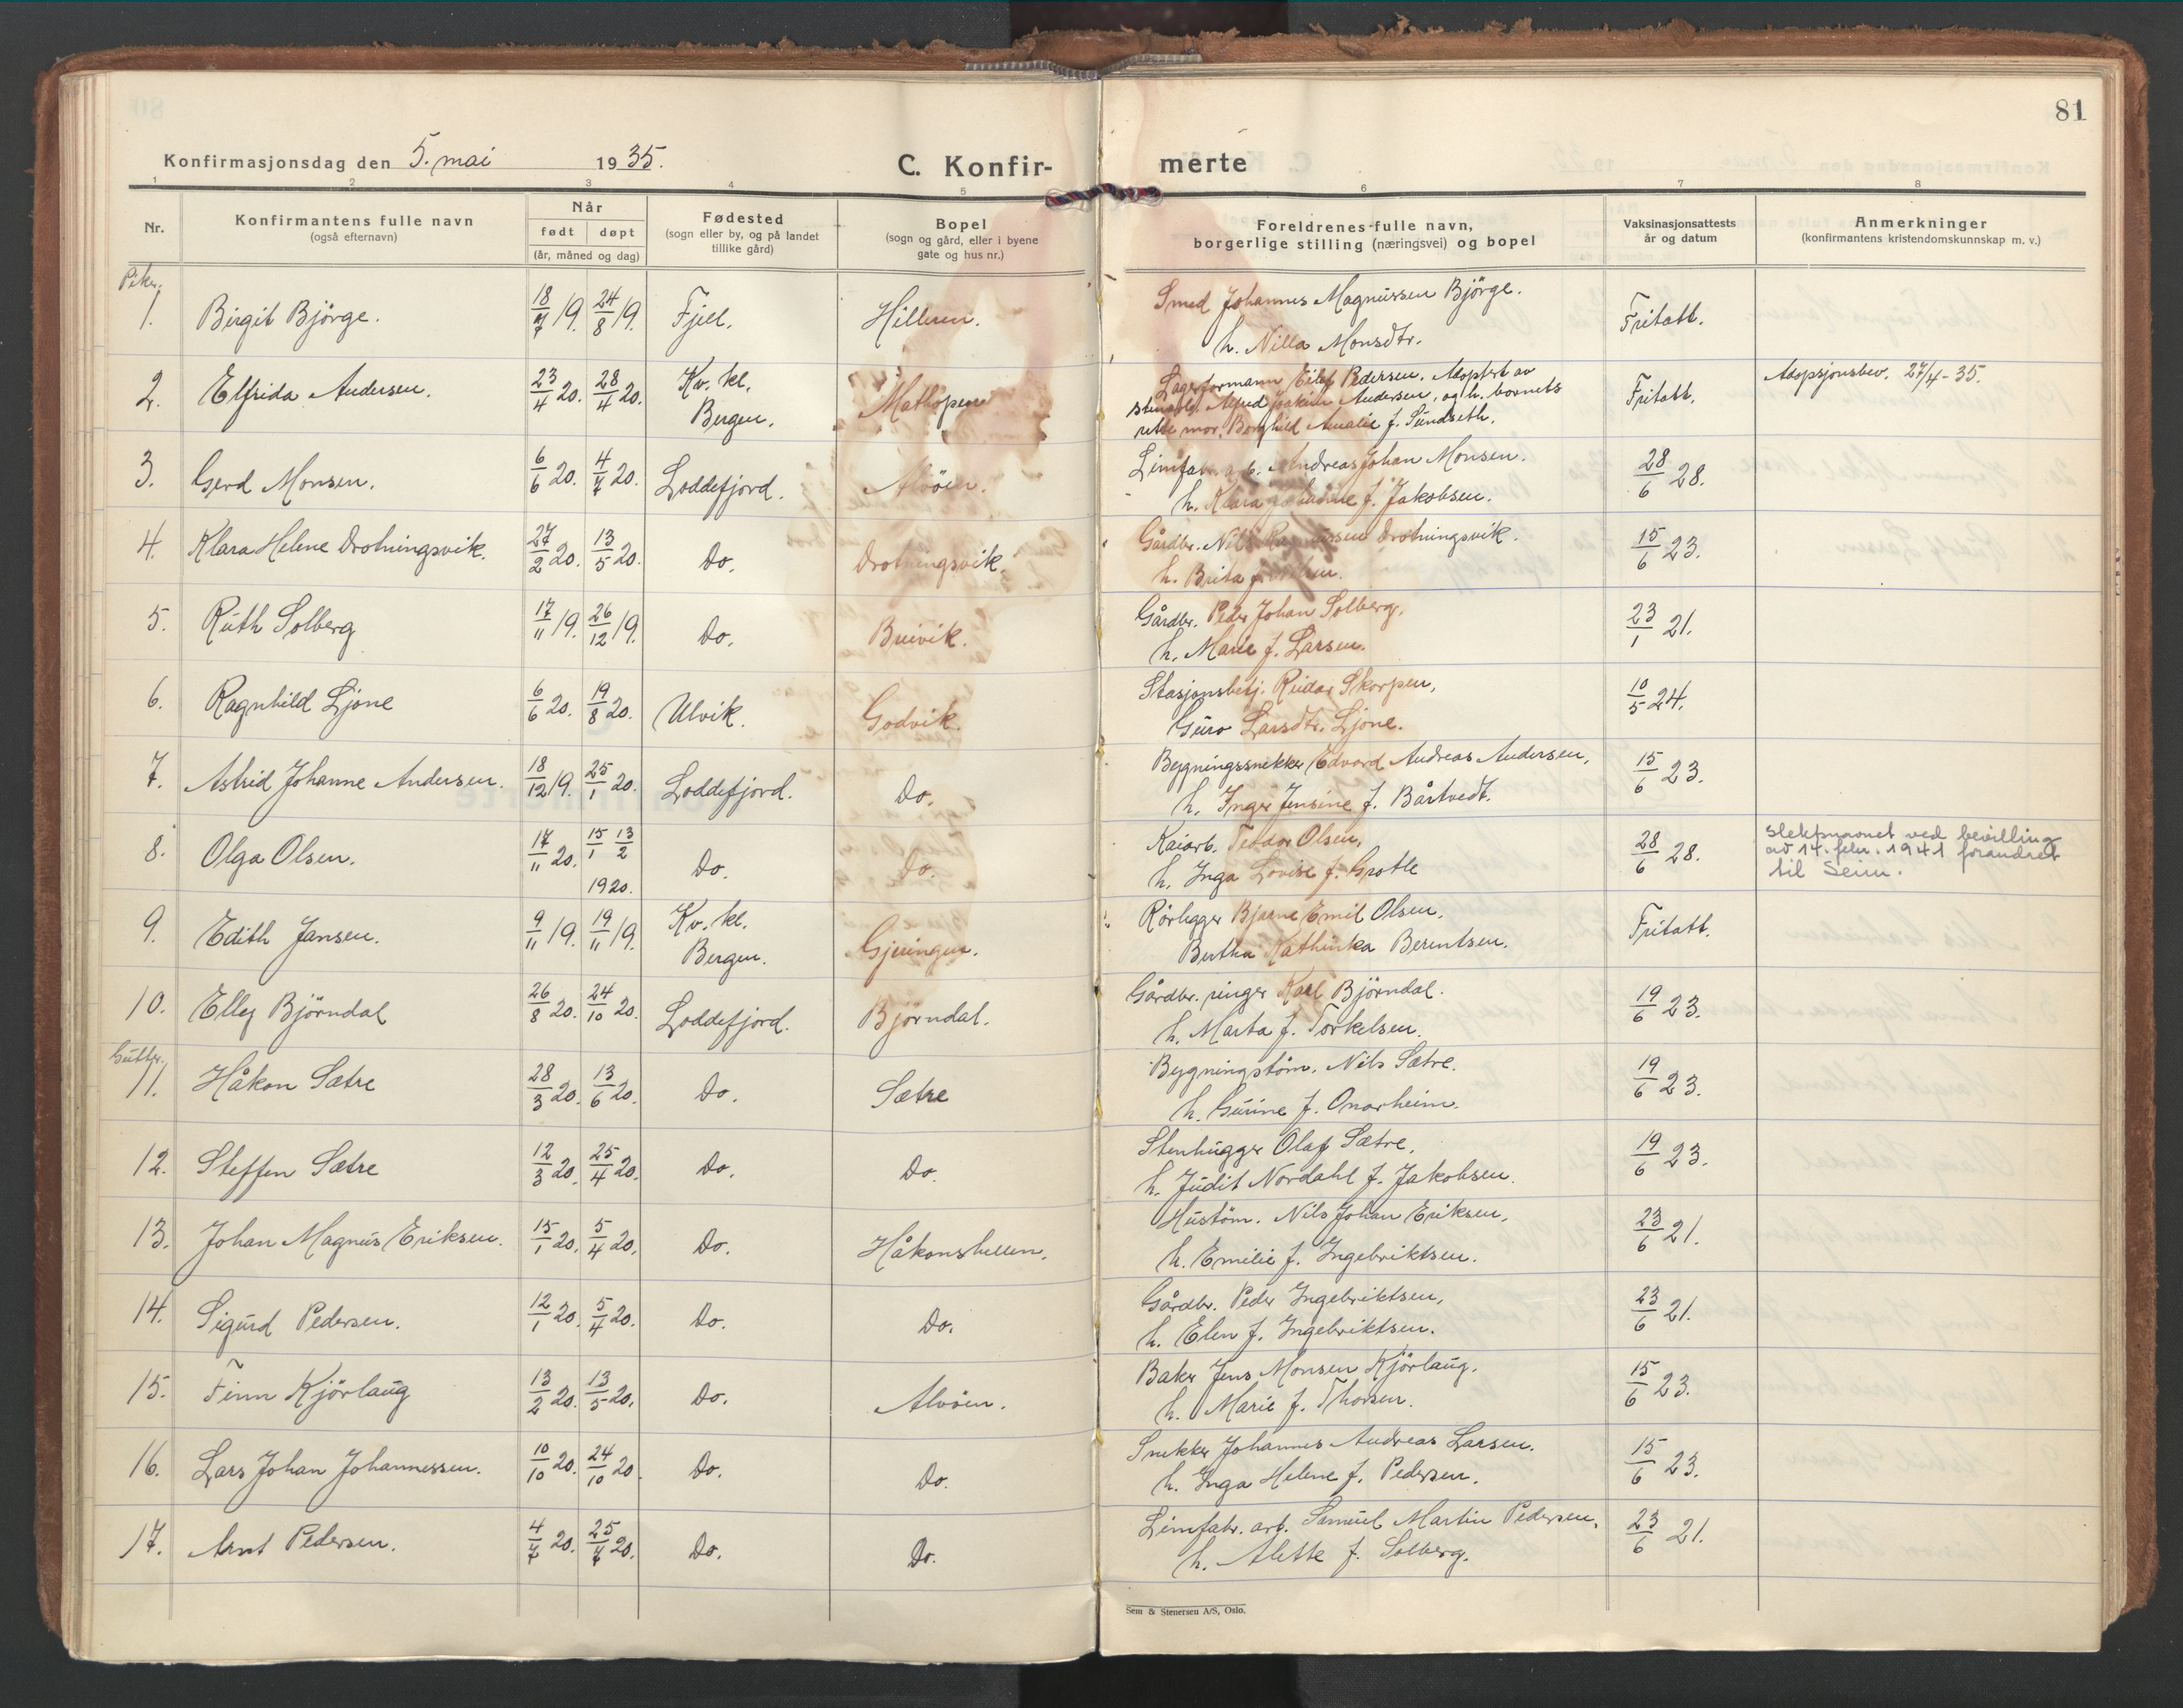 81
Konfirmasjonsdag den 5. mai 1935. C. Konfir-merte
1 2 3 4 5 6 7 8
Nr. Konfirmantens fulle navn (også efternavn) Når født døpt (år, måned og dag) Fødested (sogn eller by, og på landet tillike gård) Bopel (sogn og gård, eller i byene gate og hus nr.) Foreldrenes fulle navn, borgerlige stilling (næringsvei) og bopel Vaksinasjonsattests år og datum Anmerkninger (konfirmantens kristendomskunnskap m. v.)
Piker.
1. Birgit Björge. 18/7 19. 24/8 19. Fjell. Hilleren. Smed Johannes Magnussen Björge.
h. Nilla Monsdtr. Fritatt.
2. Elfrida Andersen. 23/4 20. 28/4 20. Kv. kl. Bergen. Mathopen Lagerformann Eilef Pedersen. Adoptert av
Alfred Joakim Andersen, og h. barnets
rette mor, Borghild Amalie f. Sundseth. Fritatt. Adopsjonsbev. 27/4-35.
3. Gerd Monsen. 6/6 20. 4/7 20. Loddefjord. Alvöen. Limfabr. arb. Andreas Johan Monsen.
h. Klara f. Jakobsen. 28/6 28.
4. Klara Helene Drotningsvik. 27/2 20. 13/5 20. Do. Drotningsvik. Gårdbr. Nils Rasmussen Drotningsvik.
h. Brita f. 15/6 23.
5. Ruth Solberg 17/11 19. 26/12 19. Do. Breivik. Gårdbr. Peder Johan Solberg.
h. Marie f. Larsen. 23/1 21.
6. Ragnhild Ljone 6/6 20. 19/8 20. Ulvik. Godvik. Stasjonsbetj. Reidar Skorpen,
Guro Larsdtr. Ljone. 10/5 24.
7. Astrid Johanne Andersen. 18/12 19. 25/1 20. Loddefjord. Do. Bygningssnekker Edvard Andreas Andersen,
h. Inger Jensine f. Bårtvedt. 15/6 23.
8. Olga Olsen. 17/11 20. 15/1 13/2 1920. Do. Do. Kaiarb. Teodor Olsen,
h. Inga Lovise f. Grotle 28/6 28. Slektsnavnet ved bevilling
av 14. febr. 1941 forandret
til Seim.
9. Edith Jansen. 9/11 19. 19/11 19. Kv. kl. Bergen. Gjeringen. Rörlegger Bjarne Emil Olsen.
Bertha Kathinka Berentsen. Fritatt.
10. Elley Björndal 26/8 20. 24/10 20. Loddefjord. Björndal. Gårdbr. ringer Karl Björndal.
h. Marta f. Torkelsen. 19/6 23.
Gutter.
11. Håkon Sætre 28/3 20. 13/6 20. Do. Sætre Bygningstöm. Nils Sætre.
h. Gurine f. Onarheim. 19/6 23.
12. Steffen Sætre 12/3 20. 25/4 20. Do. Do. Stenhugger Olaf Sætre.
h. Judit Nordahl f. Jakobsen. 19/6 23.
13. Johan Magnus Eriksen. 15/1 20. 5/4 20. Do. Håkonshellen. Hustöm. Nils Johan Eriksen,
h. Emilie f. Ingebriktsen. 23/6 21.
14. Sigurd Pedersen. 12/1 20. 5/4 20. Do. Do. Gårdbr. Peder Ingebriktsen,
h. Elen f. Ingebriktsen. 23/6 21.
15. Finn Kjörlaug 13/2 20. 13/5 20. Do. Alvöen. Baker Jens Monsen Kjörlaug.
h. Marie f. Thorsen. 15/6 23.
16. Lars Johan Johannessen. 10/10 20. 24/10 20. Do. Do. Snekker Johannes Andreas Larsen.
h. Inga Helene f. Pedersen. 15/6 23.
17. Arnt Pedersen. 4/7 20. 25/7 20. Do. Do. Limfabr. arb. Samuel Martin Pedersen,
h. Alette f. Solberg. 23/6 21.
Sem & Stenersen A/S, Oslo.